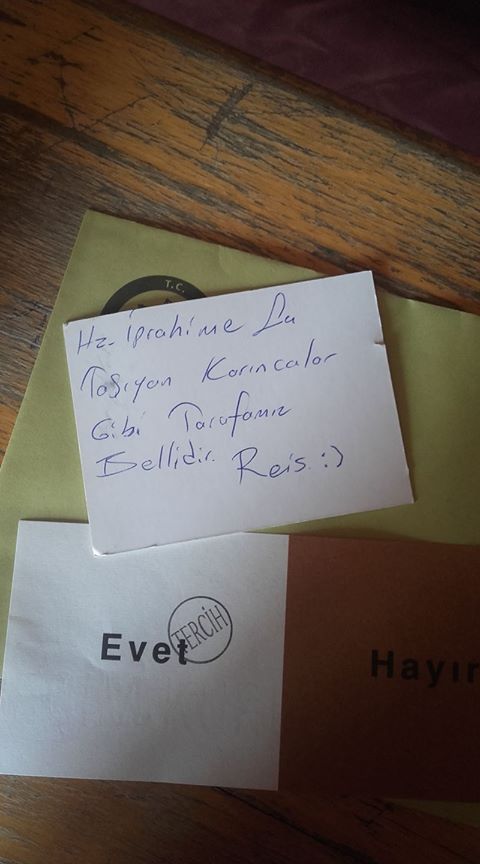 T.C.
Hz. İprahime Su
Taşıyan Karıncalar
Gibi Tarafımız
Bellidir. Reis :)
TERCİH
Evet
Hayır